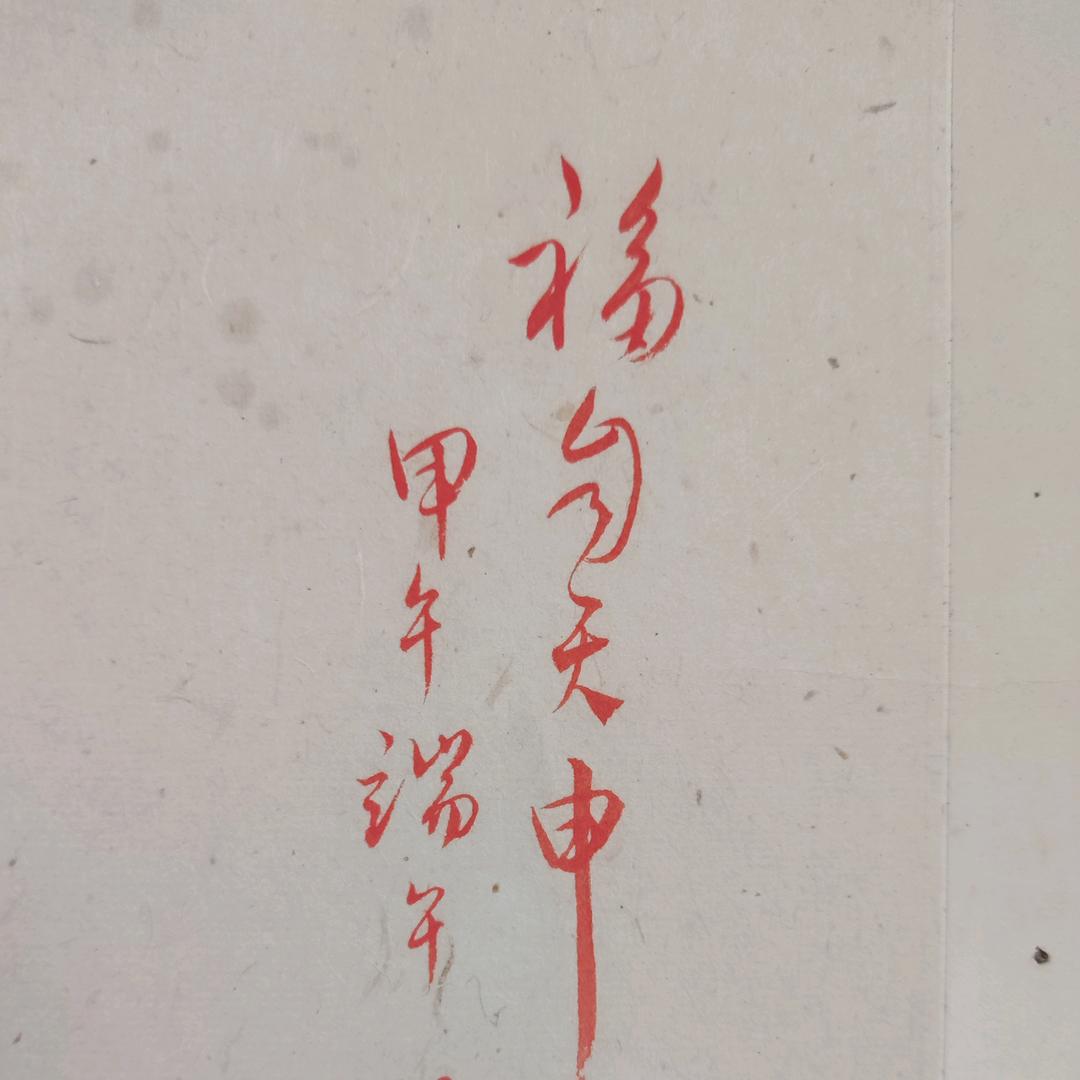 福自天申
甲午端午